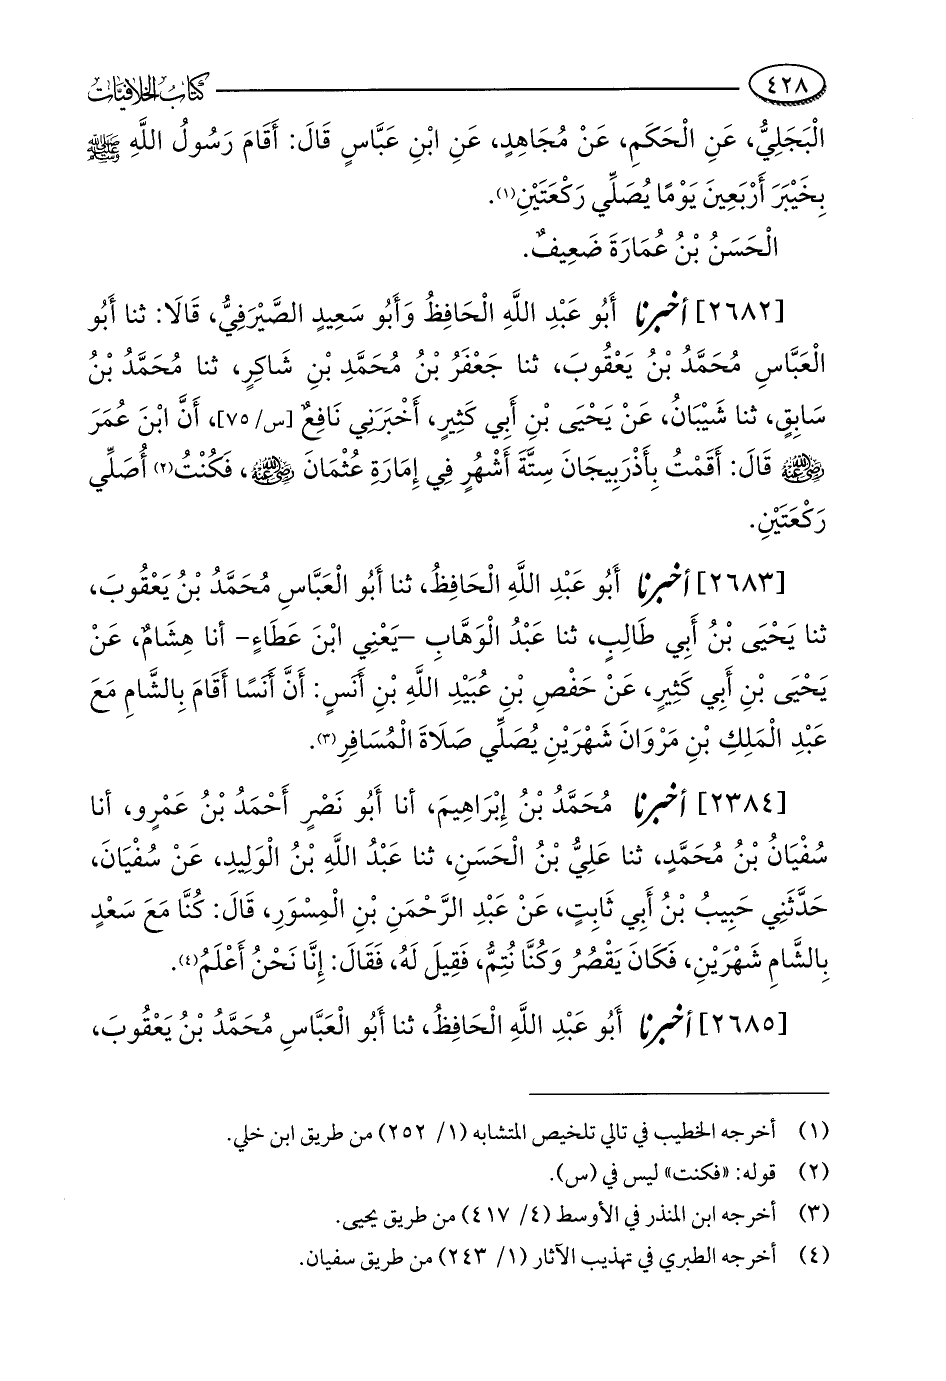 ٤٢٨ كتاب الخلافيات
الْبَجَلِيُّ، عَنِ الْحَكَمِ، عَنْ مُجَاهِدٍ، عَنِ ابْنِ عَبَّاسٍ قَالَ: أَقَامَ رَسُولُ اللَّهِ ﷺ
بِخَيْبَرَ أَرْبَعِينَ يَوْمًا يُصَلِّي رَكْعَتَيْنِ(١).
الْحَسَنُ بْنُ عُمَارَةَ ضَعِيفٌ.
[٢٦٨٢] أخبرنا أَبُو عَبْدِ اللَّهِ الْحَافِظُ وَأَبُو سَعِيدٍ الصَّيْرَفِيُّ، قَالَا: ثنا أَبُو
الْعَبَّاسِ مُحَمَّدُ بْنُ يَعْقُوبَ، ثنا جَعْفَرُ بْنُ مُحَمَّدِ بْنِ شَاكِرٍ، ثنا مُحَمَّدُ بْنُ
سَابِقٍ، ثنا شَيْبَانُ، عَنْ يَحْيَى بْنِ أَبِي كَثِيرٍ، أَخْبَرَنِي نَافِعٌ [س/٧٥]، أَنَّ ابْنَ عُمَرَ
رضي الله عنه قَالَ: أَقَمْتُ بِأَذْرَبِيجَانَ سِتَّةَ أَشْهُرٍ فِي إِمَارَةِ عُثْمَانَ رضي الله عنه، فَكُنْتُ(٢) أُصَلِّي
رَكْعَتَيْنِ.
[٢٦٨٣] أخبرنا أَبُو عَبْدِ اللَّهِ الْحَافِظُ، ثنا أَبُو الْعَبَّاسِ مُحَمَّدُ بْنُ يَعْقُوبَ،
ثنا يَحْيَى بْنُ أَبِي طَالِبٍ، ثنا عَبْدُ الْوَهَّابِ -يَعْنِي ابْنَ عَطَاءٍ- أنا هِشَامٌ، عَنْ
يَحْيَى بْنِ أَبِي كَثِيرٍ، عَنْ حَفْصِ بْنِ عُبَيْدِ اللَّهِ بْنِ أَنَسٍ: أَنَّ أَنَسًا أَقَامَ بِالشَّامِ مَعَ
عَبْدِ الْمَلِكِ بْنِ مَرْوَانَ شَهْرَيْنِ يُصَلِّي صَلَاةَ الْمُسَافِرِ(٣).
[٢٣٨٤] أخبرنا مُحَمَّدُ بْنُ إِبْرَاهِيمَ، أنا أَبُو نَصْرٍ أَحْمَدُ بْنُ عَمْرٍو، أنا
سُفْيَانُ بْنُ مُحَمَّدٍ، ثنا عَلِيُّ بْنُ الْحَسَنِ، ثنا عَبْدُ اللَّهِ بْنُ الْوَلِيدِ، عَنْ سُفْيَانَ،
حَدَّثَنِي حَبِيبُ بْنُ أَبِي ثَابِتٍ، عَنْ عَبْدِ الرَّحْمَنِ بْنِ الْمِسْوَرِ، قَالَ: كُنَّا مَعَ سَعْدٍ
بِالشَّامِ شَهْرَيْنِ، فَكَانَ يَقْصُرُ وَكُنَّا نُتِمُّ، فَقِيلَ لَهُ، فَقَالَ: إِنَّا نَحْنُ أَعْلَمُ(٤).
[٢٦٨٥] أخبرنا أَبُو عَبْدِ اللَّهِ الْحَافِظُ، ثنا أَبُو الْعَبَّاسِ مُحَمَّدُ بْنُ يَعْقُوبَ،
(١) أخرجه الخطيب في تالي تلخيص المتشابه (١/ ٢٥٢) من طريق ابن خلي.
(٢) قوله: «فكنت» ليس في (س).
(٣) أخرجه ابن المنذر في الأوسط (٤/ ٤١٧) من طريق يحيى.
(٤) أخرجه الطبري في تهذيب الآثار (١/ ٢٤٣) من طريق سفيان.